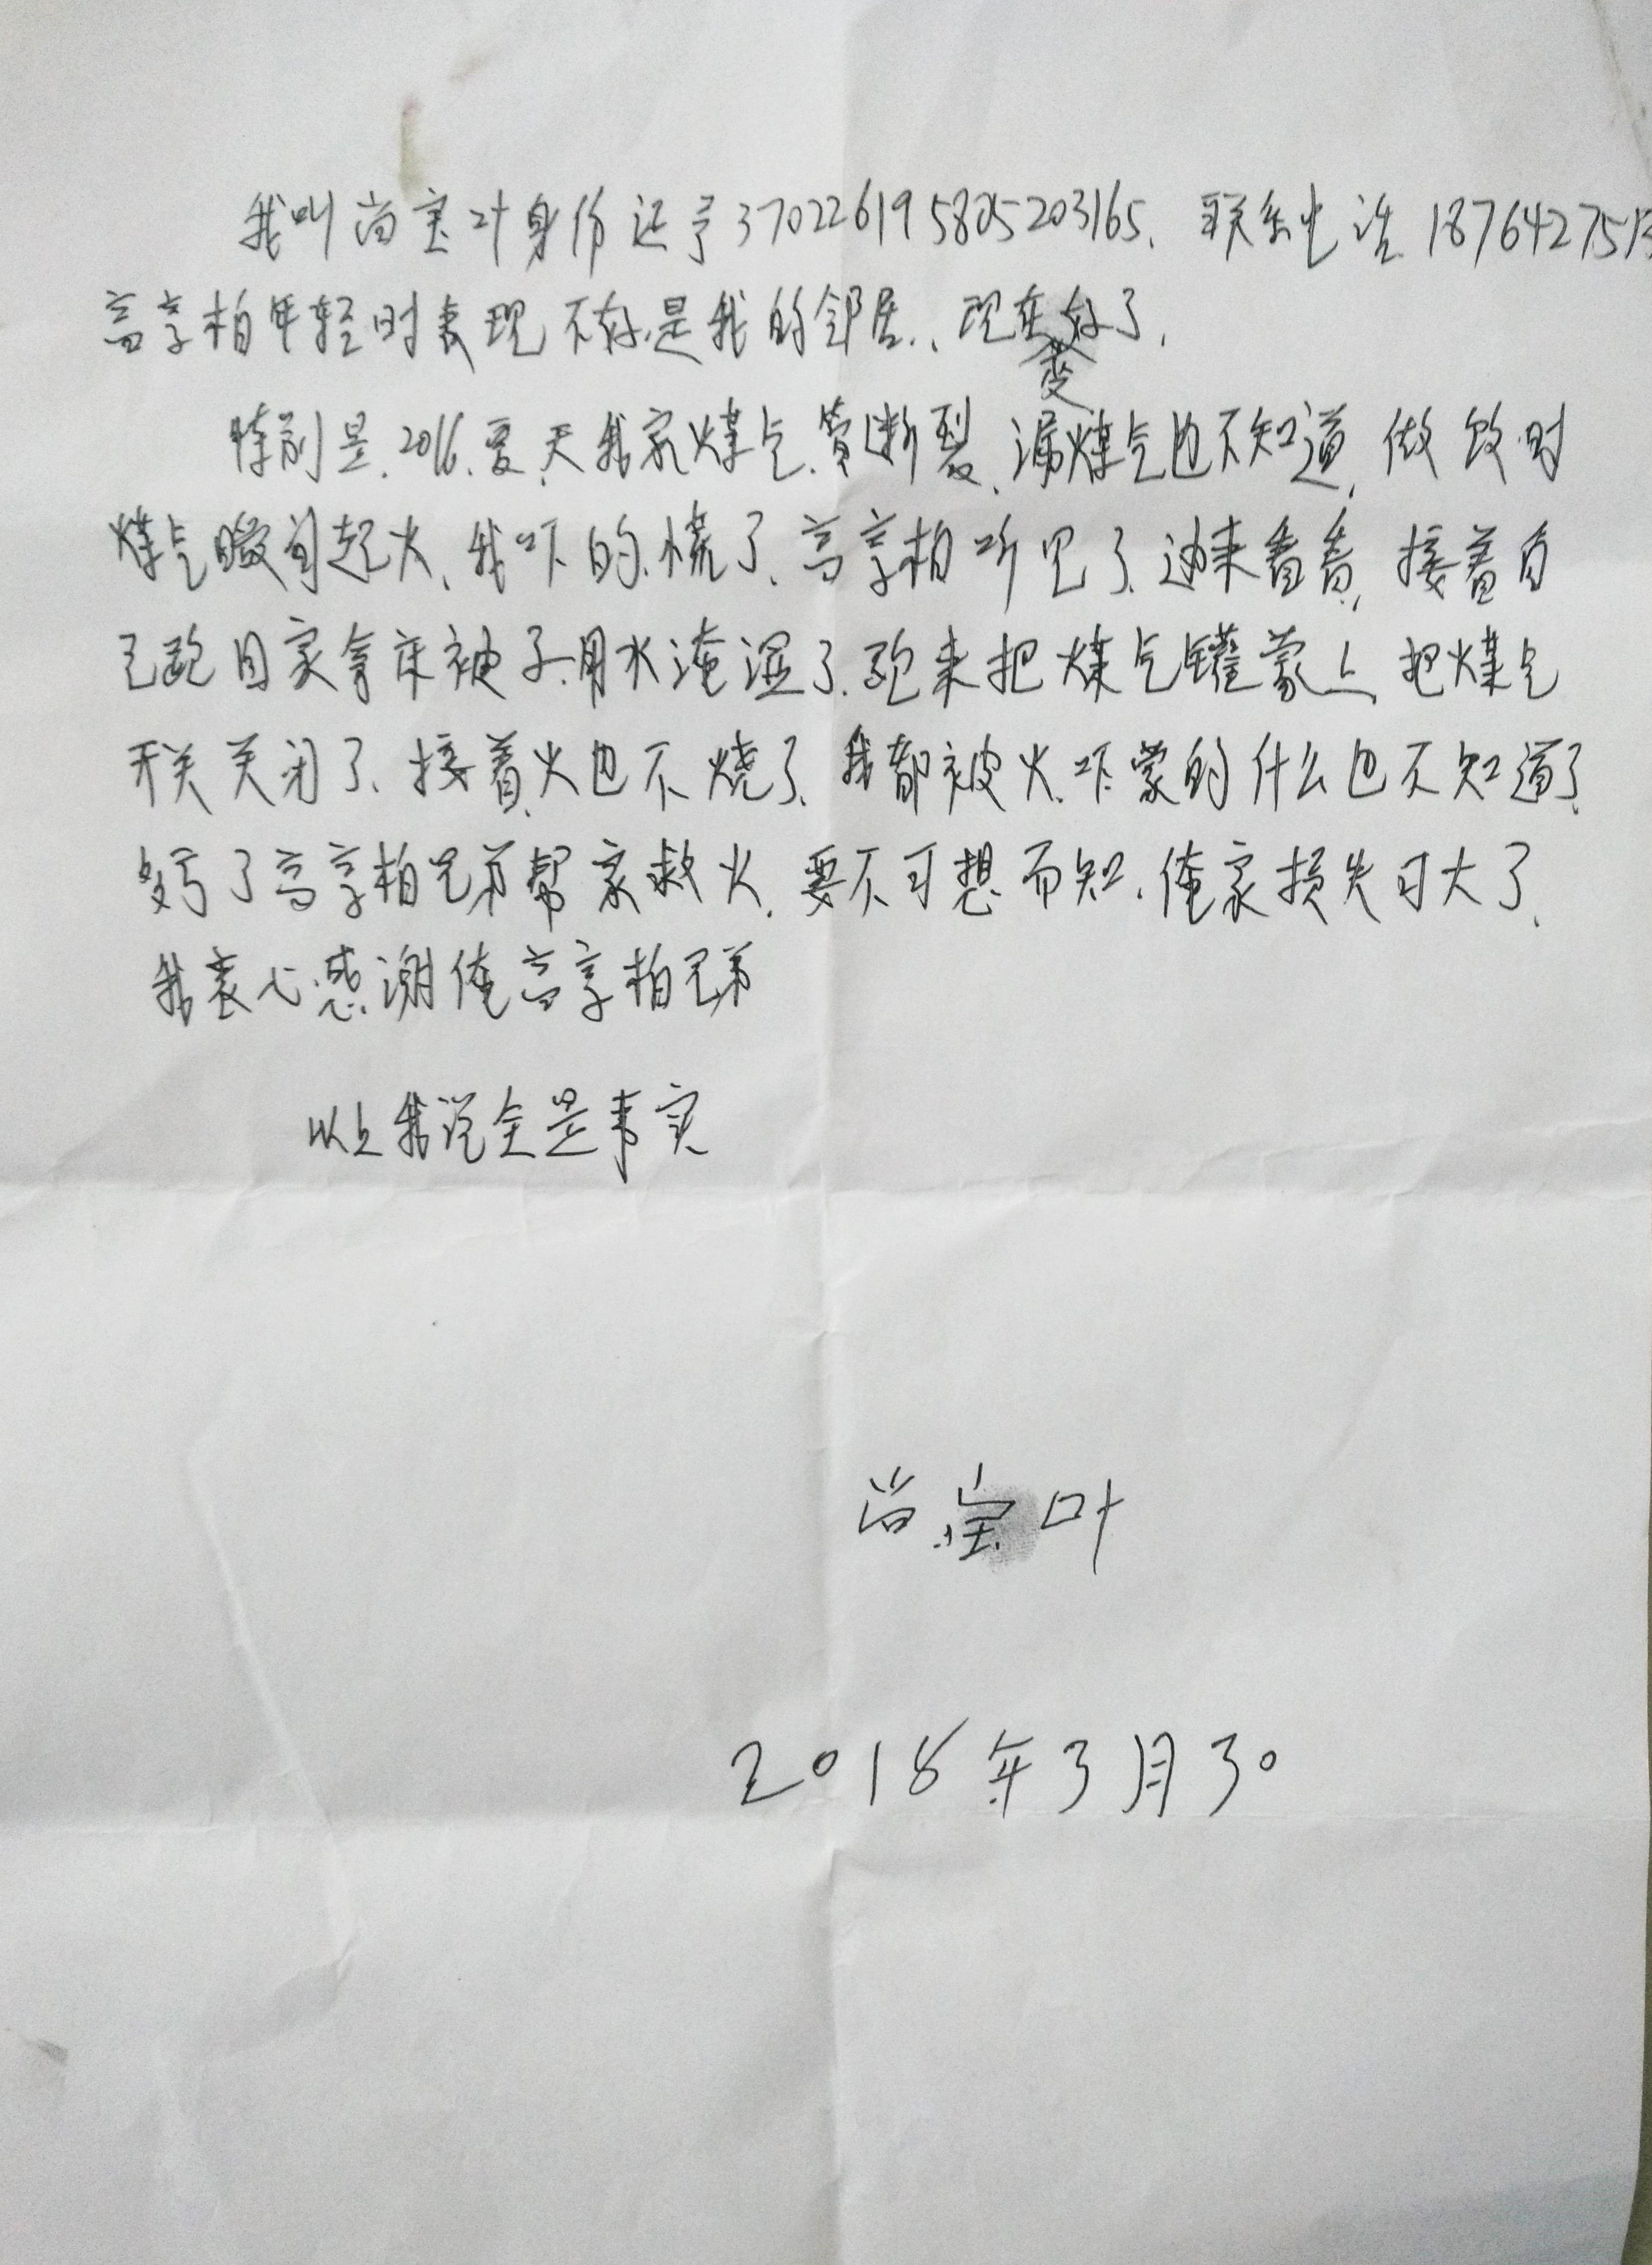 我叫尚宝叶身份证号370226195805203165.联系电话1876427513
高享柏年轻时表现不好是我的邻居.、现在变好了.
特别是.2016.夏天我家煤气.管断裂、漏煤气也不知道,做饭时
煤气瞬间起火、我吓的慌了、高享柏听见了.过来看看,接着自
己跑自家拿床被子用水淹湿了.跑来把煤气罐蒙上,把煤气
开关关闭了、接着火也不烧了、我都被火吓蒙的什么也不知道了.
多亏了高享柏兄弟帮家救火.要不可想而知.俺家损失可大了.
我衷心感谢俺高享柏兄弟
以上我说全是事实
尚宝叶
2018年3月30